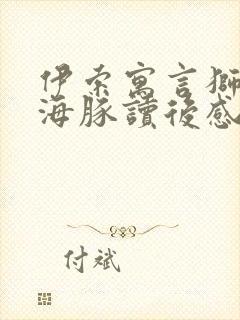 伊索寓言獅
海豚讀後感
付斌